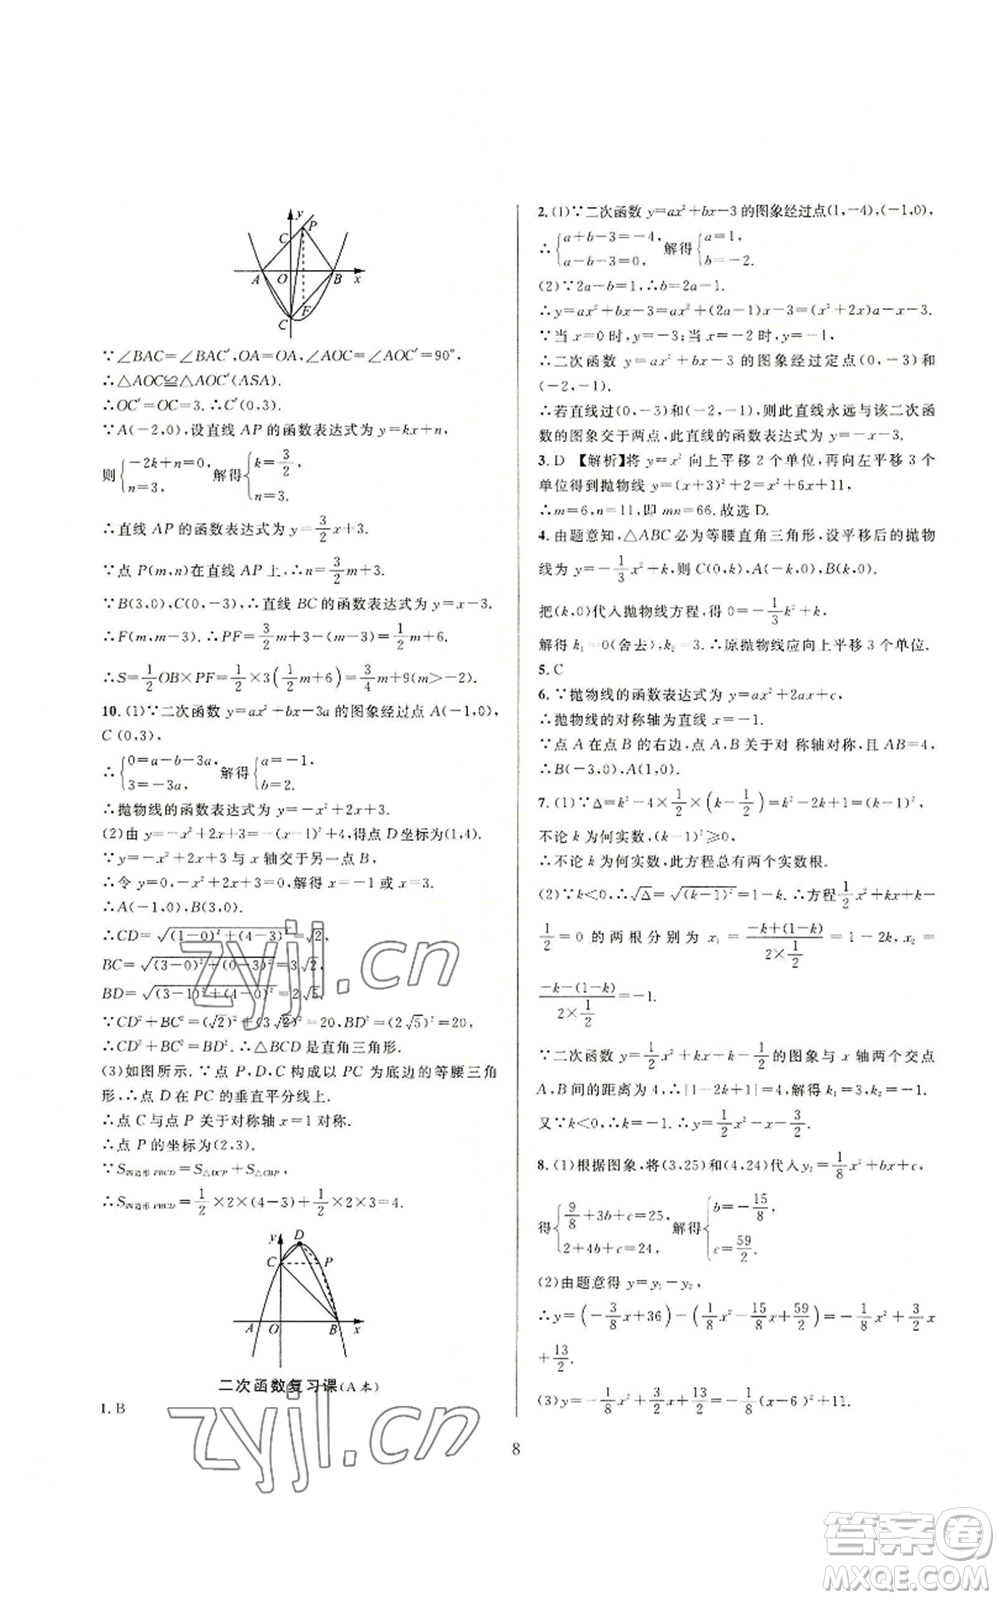 y
C′
P
A
O
B
x
F
C
∵∠BAC=∠BAC′,OA=OA,∠AOC=∠AOC′=90°,
∴△AOC≌△AOC′(ASA).
∴OC′=OC=3.∴C′(0,3).
∵A(-2,0),设直线 AP 的函数表达式为 y=kx+n,
则{-2k+n=0, n=3, 解得{k=3/2, n=3.
∴直线 AP 的函数表达式为 y=3/2x+3.
∵点 P(m,n)在直线 AP 上,∴n=3/2m+3.
∵B(3,0),C(0,-3),∴直线 BC 的函数表达式为 y=x-3.
∴F(m,m-3).∴PF=3/2m+3-(m-3)=1/2m+6.
∴S=1/2OB×PF=1/2×3(1/2m+6)=3/4m+9(m>-2).
10.(1)∵二次函数 y=ax²+bx-3a 的图象经过点 A(-1,0),
C(0,3),
∴{0=a-b-3a, 3=-3a, 解得{a=-1, b=2.
∴抛物线的函数表达式为 y=-x²+2x+3.
(2)由 y=-x²+2x+3=-(x-1)²+4,得点 D 坐标为(1,4).
∵y=-x²+2x+3 与 x 轴交于另一点 B,
∴令 0=-x²+2x+3,解得 x=-1 或 x=3.
∴A(-1,0),B(3,0).
∴CD=√((1-0)²+(4-3)²)=√2,
BC=√((3-0)²+(0-3)²)=3√2,
BD=√((3-1)²+(4-0)²)=2√5.
∵CD²+BC²=(√2)²+(3√2)²=20,BD²=(2√5)²=20,
∴CD²+BC²=BD².∴△BCD 是直角三角形.
(3)如图所示.∵点 P、D、C 构成以 PC 为底边的等腰三角
形,∴点 D 在 PC 的垂直平分线上.
∴点 C 与点 P 关于对称轴 x=1 对称.
∴点 P 的坐标为(2,3).
∵S四边形PBCD=S△DCP+S△CBP,
∴S四边形PBCD=1/2×2×(4-3)+1/2×2×3=4.
y
D
C
P
A
O
B
x
二次函数复习课(A本)
1.B
2.(1)∵二次函数 y=ax²+bx-3 的图象经过点(1,-4),(-1,0),
∴{a+b-3=-4, a-b-3=0, 解得{a=1, b=-2.
(2)∵2a-b=1,∴b=2a-1.
∴y=ax²+bx-3=ax²+(2a-1)x-3=(x²+2x)a-x-3.
∵当 x=0 时,y=-3;当 x=-2 时,y=-1,
∴二次函数 y=ax²+bx-3 的图象经过定点(0,-3)和
(-2,-1).
∴若直线过(0,-3)和(-2,-1),则此直线永远与该二次函
数的图象交于两点,此直线的表达式为 y=-x-3.
3.D 【解析】将 y=x² 向上平移 2 个单位,再向左平移 3 个
单位得到抛物线 y=(x+3)²+2=x²+6x+11,
∴m=6,n=11,即 mn=66.故选 D.
4.由题意知,△ABC 必为等腰直角三角形,设平移后的抛物
线为 y=-1/3x²+k,则 C(0,k),A(-k,0),B(k,0).
把(k,0)代入抛物线方程,得 0=-1/3k²+k,
解得 k₁=0(舍去),k₂=3.∴原抛物线应向上平移 3 个单位.
5.C
6.∵抛物线的函数表达式为 y=ax²+2ax+c,
∴抛物线的对称轴为直线 x=-1.
∵点 A 在点 B 的右边,点 A,B 关于对 称轴对称,且 AB=4,
∴B(-3,0),A(1,0).
7.(1)∵Δ=k²-4×1/2×(k-1/2)=k²-2k+1=(k-1)²,
不论 k 为何实数,(k-1)²≥0,
∴不论 k 为何实数,此方程总有两个实数根.
(2)∵k<0,∴√Δ=√((k-1)²)=1-k.∴方程1/2x²+kx+k-
1/2=0 的两根分别为 x₁=(-k+(1-k))/(2×1/2)=1-2k,x₂=
(-k-(1-k))/(2×1/2)=-1.
∵二次函数 y=1/2x²+kx+k-1/2的图象与 x 轴两个交点
A,B 间的距离为 4,∴|1-2k+1|=4.解得 k₁=3,k₂=-1.
又∵k<0,∴k=-1.∴y=1/2x²-x-3/2.
8.(1)根据图象,将(3,25)和(4,24)代入 y₂=1/8x²+bx+c,
得{9/8+3b+c=25, 2+4b+c=24, 解得{b=-15/8, c=59/2.
(2)由题意得 y=y₁-y₂,
∴y=(-3/8x+36)-(1/8x²-15/8x+59/2)=-1/8x²+3/2x
+13/2.
(3)y=-1/8x²+3/2x+13/2=-1/8(x-6)²+11.
8
zyjl.cn
zyjl.cn
答案卷
MXQE.COM